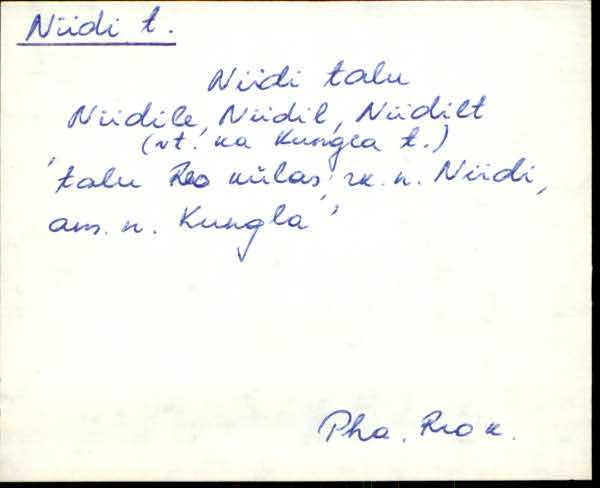 Niidi t.
Niidi talu
Niidile, Niidil, Niidilt
(vt. ka Kungla t.)
'talu Reo külas, rk. n. Niidi,
am. n. Kungla'
Pha. Reo k.